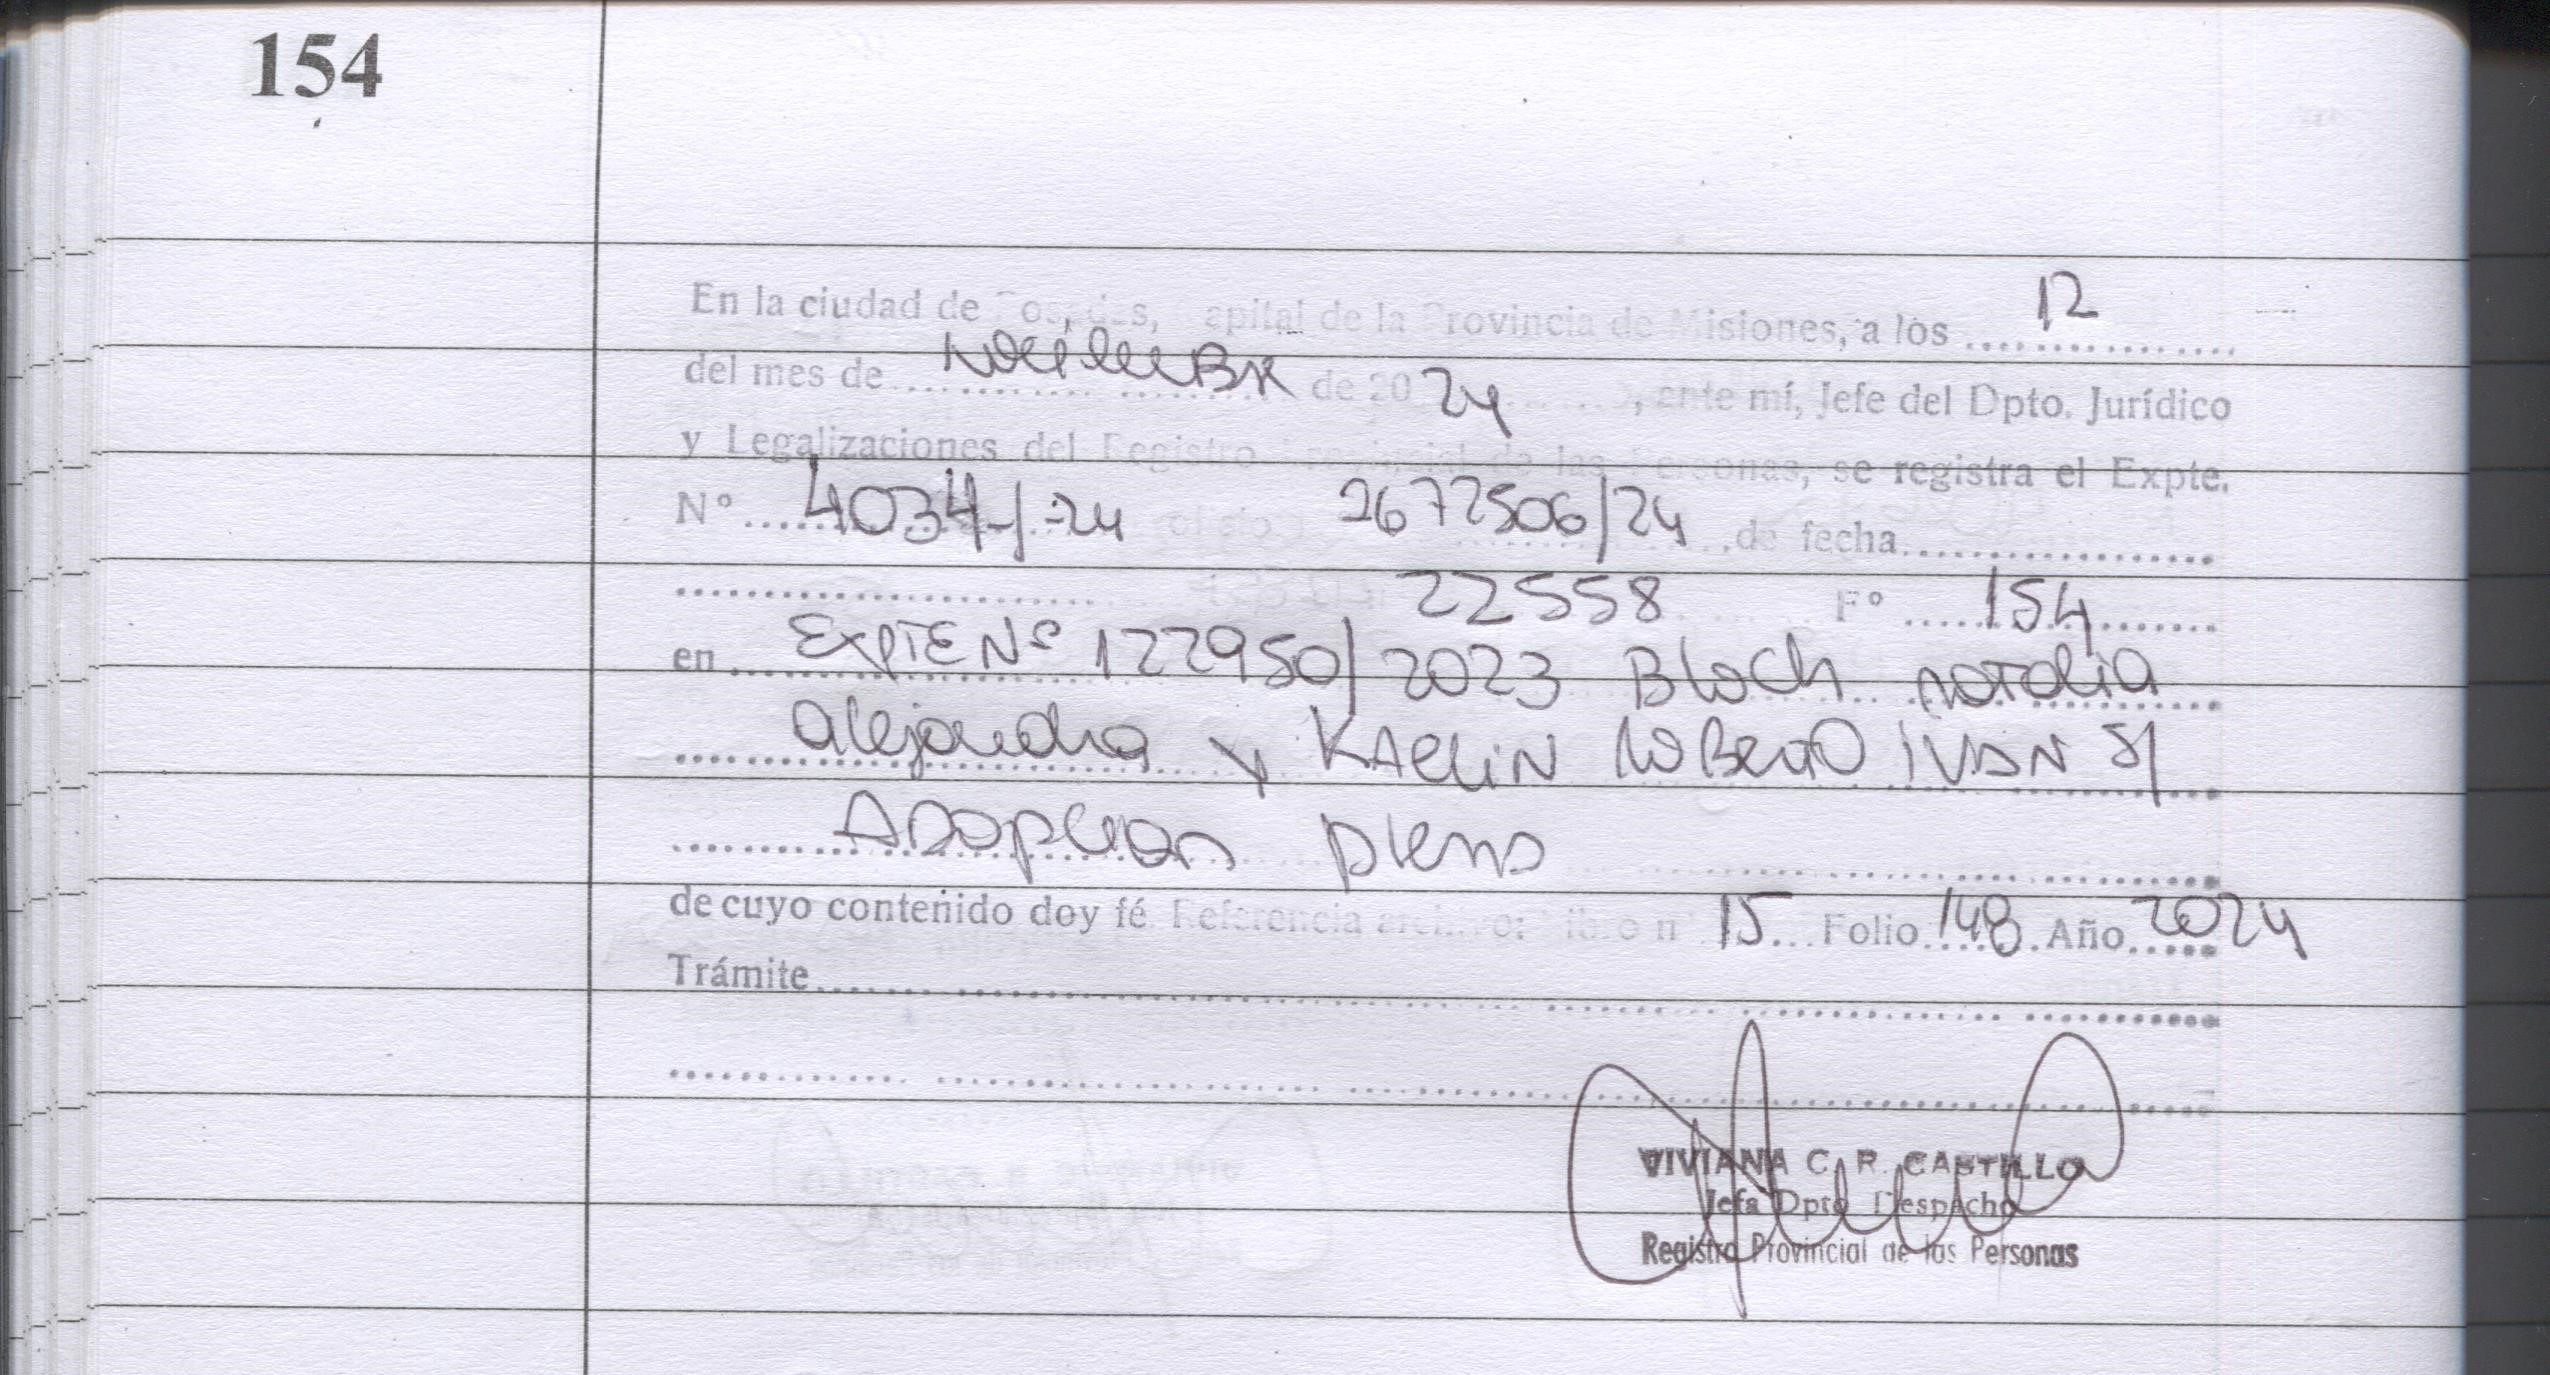 154
En la ciudad de Posadas, Capital de la Provincia de Misiones, a los 12
del mes de NoviemBre de 2024, ante mí, Jefe del Dpto. Jurídico
y Legalizaciones del Registro Provincial de las Personas, se registra el Expte.
Nº 4034-/-24 2672506/24 de fecha
22558 Fº 154
en EXPTE Nº 122950/2023 Bloch Natalia
Alejandra y KAellIN RoBerto IVAN S/
Adopcion plena
de cuyo contenido doy fé Referencia archivo: libro nº 15 Folio 148 Año 2024
Trámite
VIVIANA C. R. CASTILLO
Jefa Dpto Despacho
Registro Provincial de las Personas